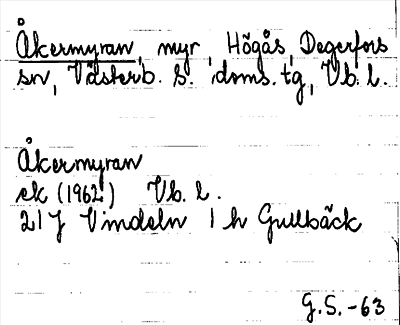 Åkermyran, myr, Högås, Degerfors
sn, Västerb. s. doms. tg, Vb. l.
Åkermyran
ek (1962) Vb. l.
21 J Vindeln 1 h Gullbäck
G.S. -63